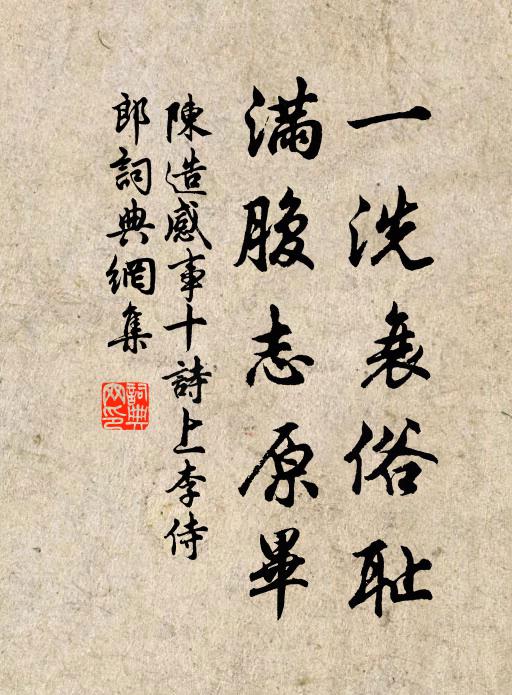 一洗衰俗耻
滿腹志原畢
陳造感事十詩上李侍
郎詞典網集
詞典網印